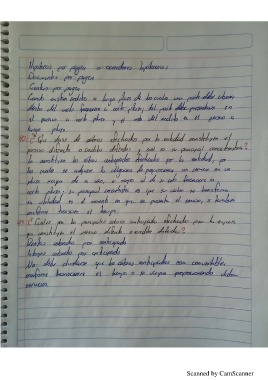 Hipotecas por pagar o acreedores hipotecarios
Documentos por pagar
Cuentas por pagar
Cuando existan créditos a largo plazo de los cuales una parte debe
dentro del año
el pasivo a corto plazo y el resto del crédito en el pasivo a
largo plazo.
¿Qué clase de cobros efectuados por la entidad constituyen el
pasivo diferido o créditos diferidos y cuál es su principal característica?
Lo constituyen los cobros anticipados efectuados por la entidad, por
los cuales se adquiere la obligación de proporcionar un servicio en un
plazo mayor de un año, o mayor al de su ciclo financiero a
corto plazo; su principal característica es que su valor se transforma
en utilidad en el momento en que se presta el servicio, o también
conforme transcurre el tiempo.
¿Cuáles son los principales cobros anticipados efectuados por la empresa
que constituyen el pasivo diferido o créditos diferidos?
Rentas cobradas por anticipado
Intereses cobrados por anticipado
que los cobros anticipados son convertibles
conforme transcurre el tiempo o se vayan proporcionando dichos
servicios.
Scanned by CamScanner